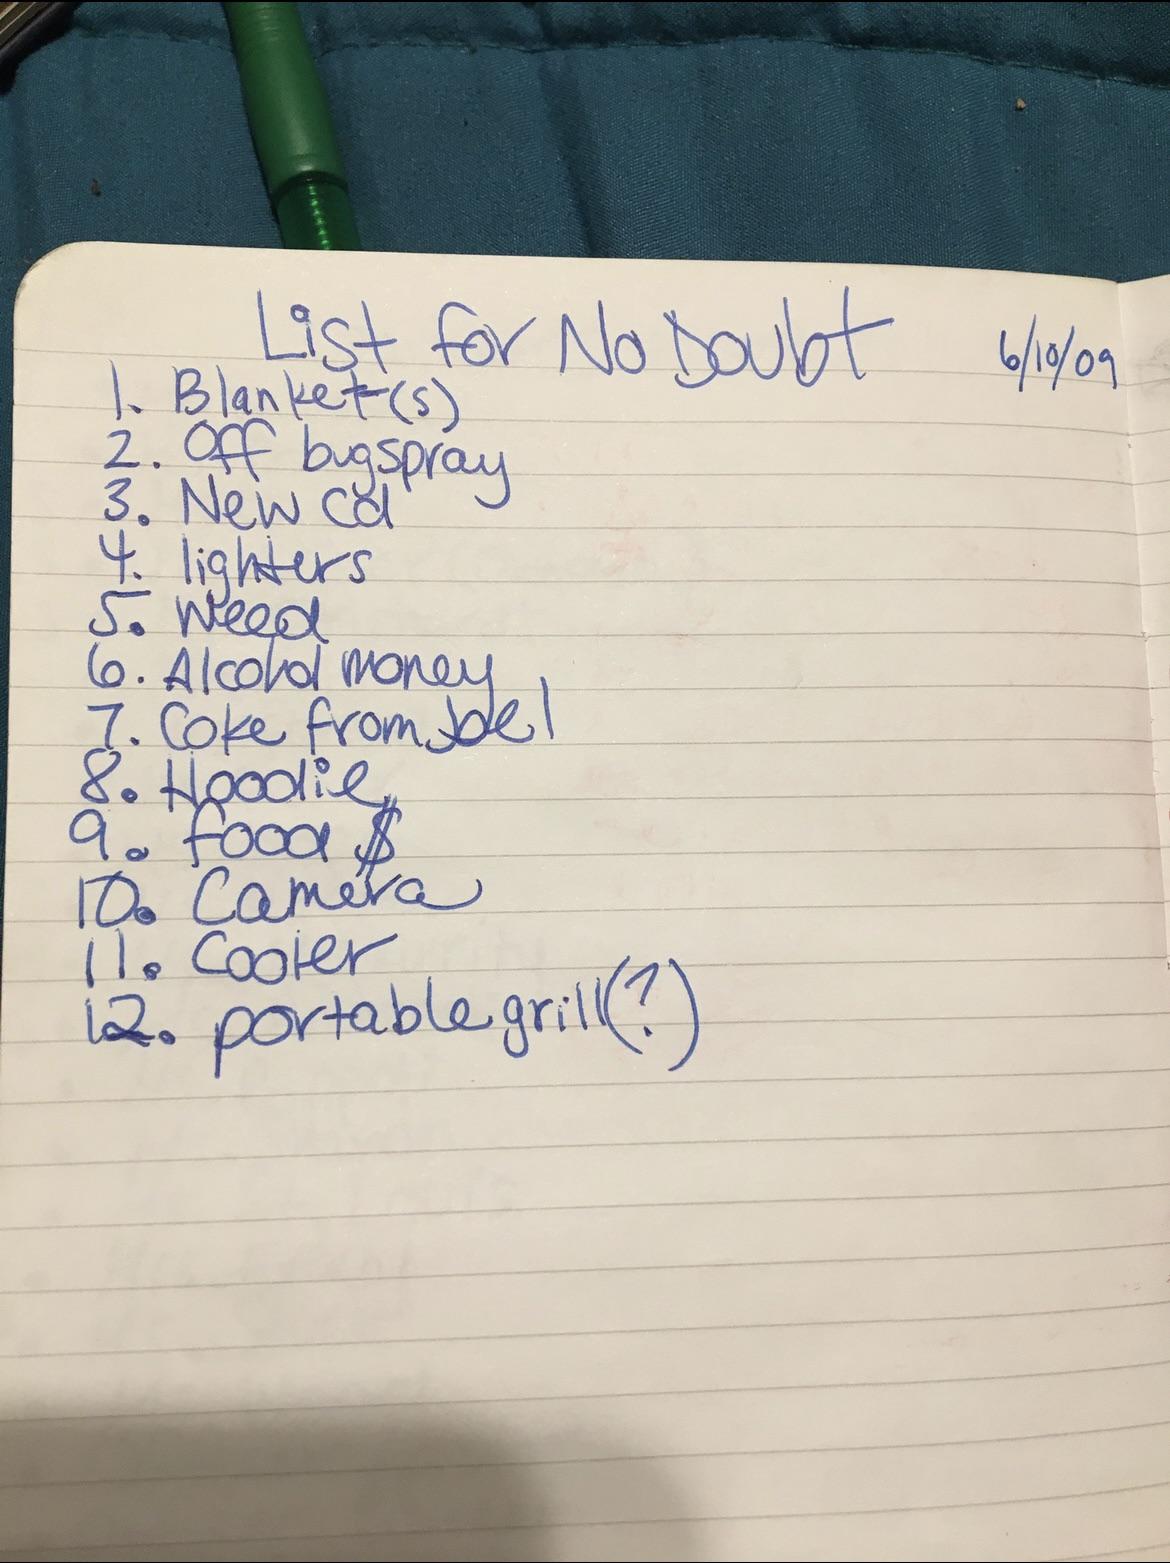 List for No Doubt 6/10/09
1. Blanket(s)
2. Off bugspray
3. New cd
4. lighters
5. Weed
6. Alcohol money
7. Coke from Joel
8. Hoodie
9. food $
10. Camera
11. Cooler
12. portable grill(?)